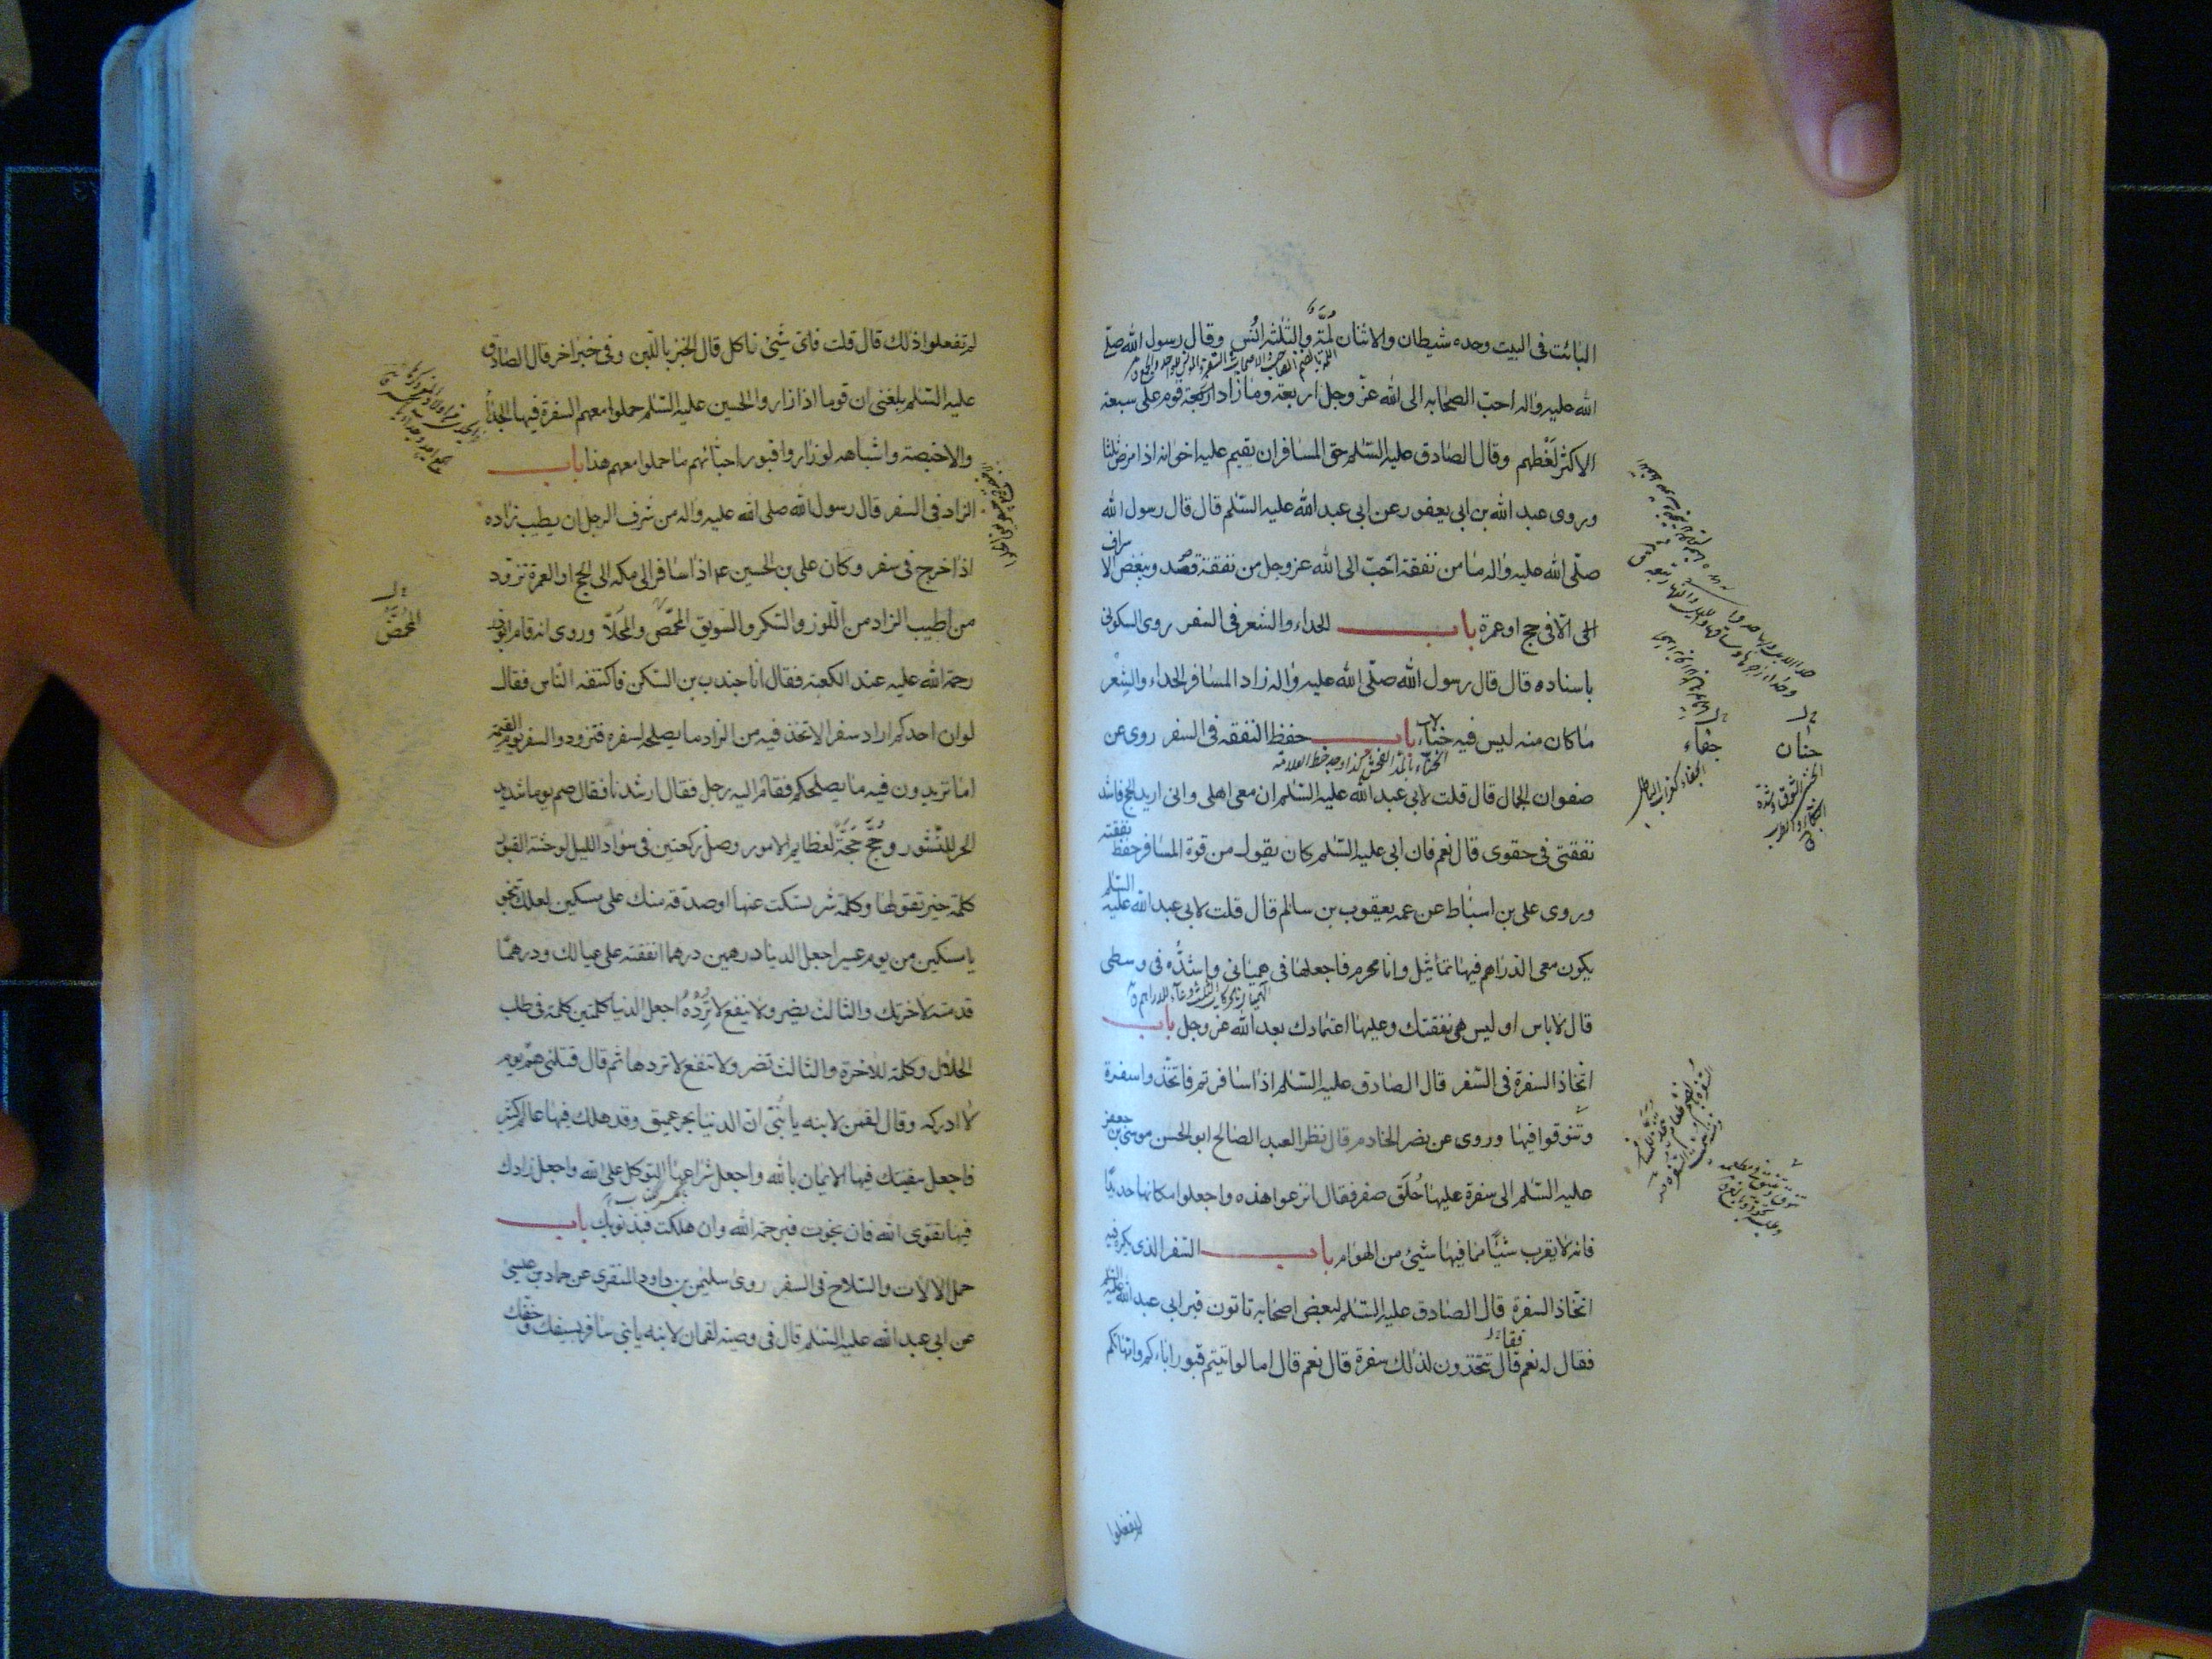 البائت فى البيت وحده شيطان والاثنان لُمَّة والثلثة اُنْس وقال رسول الله صلى
الله عليه واله احبّ الصحابه الى الله عزّ وجل اربعة وما زاد قوم على سبعة
الا كثر لَغَطهم وقال الصادق عليه السّلم حق المسافر ان يقيم عليه اخوانه اذا مرض ثلثا
وروى عبد الله بن ابى يعفور عن ابى عبد الله عليه السّلم قال قال رسول الله
صلّى الله عليه واله ما من نفقة احَبّ الى الله عز وجل من نفقة قصْد ويبغض الا
سراف
الا فى حج او عمرة باب الحداء والشعر فى السفر روى السكونى
باسناده قال قال رسول الله صلّى الله عليه واله زاد المسافر الحداء والشِعْر
ما كان منه ليس فيه خناء باب حفظ النفقه فى السفر روى عن
صفوان الجمال قال قلت لابى عبد الله عليه السّلم ان معى اهلى وانى اريد الحج فاشد
نفقتى فى حقوى قال نعم فان ابى عليه السّلم كان يقول من قوة المسافر حفظ
نفقته
وروى على بن اسباط عن عمه يعقوب بن سالم قال قلت لابى عبد الله عليه
السّلم
يكون معى الدراهم فيها تماثيل وانا محرم فاجعلها فى همياني واشدُّه فى وسطى
قال لا باس او ليس هى نفقتك وعليها اعتمادك بعد الله عز وجل باب
اتخاذ السفرة فى السّفر قال الصادق عليه السّلم اذا سافرتم فاتّخذوا سفرة
وتنوقوا فيها وروى عن نضر الخادم قال نظر العبد الصالح ابو الحسن موسى بن
جعفر
عليه السّلم الى سفرة عليها حُلَق صفر فقال انزعوا هذه واجعلوا مكانها حديدًا
فانه لا يقرب شيًا مما فيها شيئ من الهوام باب السفر الذى يكره فيه
اتّخاذ السفرة قال الصادق عليه السّلم لبعض اصحابه تاتون قبر ابى عبد الله عليه
السّلم
فقال له نعم قال تتّخذون لذلك سفرة قال نعم قال اما لو اتيتم قبور اباءكم وامهاتكم
حنان
جفاء
لم تفعلوا
لم تفعلوا ذلك قال قلت فاى شيئ ناكل قال الخبز باللبن وفى خبر اخر قال الصادق
عليه السّلم بلغنى ان قوما اذا زاروا الحسين عليه السّلم حملوا معهم السفرة فيها الجداء
والاخبصة واشباهه لو زاروا قبور احبّائهم ما حملوا معهم هذا باب
الزاد فى السفر قال رسول الله صلى الله عليه واله من شرف الرجل ان يطيب زاده
اذا خرج فى سفر وكان على بن الحسين ع اذا سافر الى مكه الى الحج او العمرة تزود
من اطيب الزاد من اللّوز والسّكر والسّويق المحمّص والمحلّا وروى انه قام ابوذر
المحمّض
رحمة الله عليه عند الكعبة فقال انا جندب بن السّكن فاكتنفه النّاس فقال
لو ان احدكم اراد سفرا لاتخذ فيه من الزاد ما يصلحه لسفره فتزودوا لسفر يوم القيمة
اما تريدون فيه ما يصلحكم فقام اليه رجل فقال ارشدنا فقال صم يوما شديد
الحر للنّشور وحُجَّ حَجَّةً لعظايم الامور وصلّ ركعتين فى سواد الليل لوحشة القبور
كلمة خير تقولها وكلمة شر تسكت عنها او صدقة منك على مسكين لعلك تنجو
يا مسكين من يوم عسير اجعل الدنيا درهمين درهما انفقته على عيالك ودرهمًا
قدمته لاخرتك والثالث يضر ولا ينفع لا تردهُ اجعل الدنيا كلمتين كلمة فى طلب
الحلال وكلمة للاخرة والثالث تضر ولا تنفع لا تردها ثم قال قتلنى هم يوم
لا ادركه وقال لقمن لابنه يا بُنَىّ انّ الدنيا بحر عميق وقد هلك فيها عالم كثير
فاجعل سفينتك فيها الايمان بالله واجعل شراعها التوكل على الله واجعل زادك
فيها تقوى الله فان نجوت فبرحمة الله وان هلكت فبذنوبك باب
حمل الالات والسّلاح فى السفر روى سليمن بن داود المنقرى عن حماد بن عيسى
عن ابى عبد الله عليه السّلم قال فى وصية لقمان لابنه يا بنى سافر بسيفك وخفّك